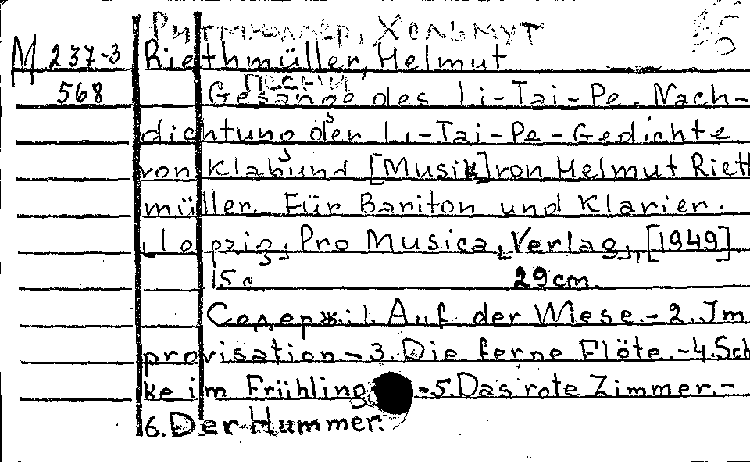 Ритмюллер, Хельмут
М 237-3 Riethmüller, Helmut
Песни
568 Gesänge des Li-Tai-Pe. Nach-
dichtung der Li-Tai-Pe-Gedichte
von Klabund [Musik] von Helmut Rieth
müller. Für Bariton und Klavier.
Leipzig, Pro Musica, Verlag, [1949]
15 c 29 cm.
Содерж: 1. Auf der Wiese.-2. Im
provisation-3. Die ferne Flöte.-4. Sch
ke im Frühling -5. Das rote Zimmer.-
6. Der Hummer.